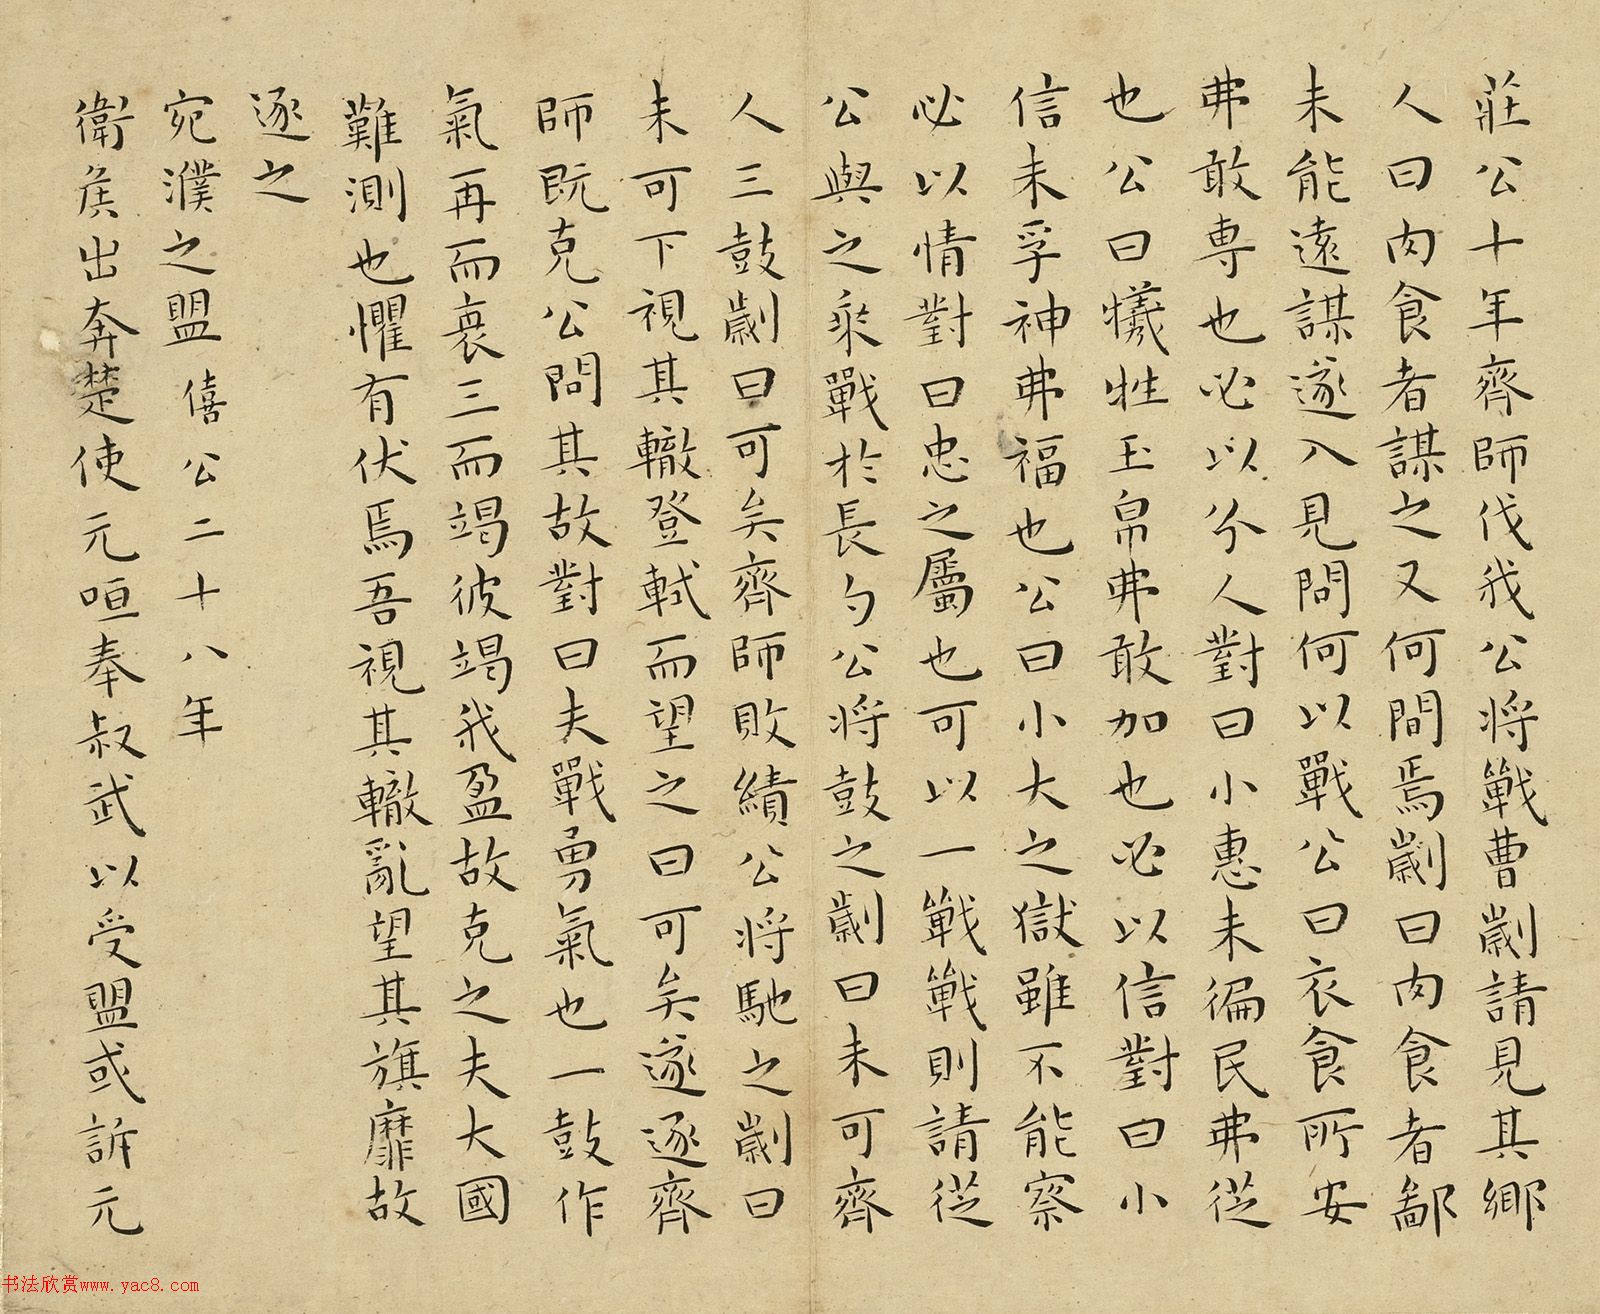 莊公十年齊師伐我公將戰曹劌請見其鄉
人曰肉食者謀之又何間焉劌曰肉食者鄙
未能遠謀遂入見問何以戰公曰衣食所安
弗敢專也必以分人對曰小惠未徧民弗從
也公曰犧牲玉帛弗敢加也必以信對曰小
信未孚神弗福也公曰小大之獄雖不能察
必以情對曰忠之屬也可以一戰戰則請從
公與之乘戰於長勺公將鼓之劌曰未可齊
人三鼓劌曰可矣齊師敗績公將馳之劌曰
未可下視其轍登軾而望之曰可矣遂逐齊
師既克公問其故對曰夫戰勇氣也一鼓作
氣再而衰三而竭彼竭我盈故克之夫大國
難測也懼有伏焉吾視其轍亂望其旗靡故
逐之
宛濮之盟 僖公二十八年
衛侯出奔楚使元咺奉叔武以受盟或訴元
书法欣赏www.yac8.com